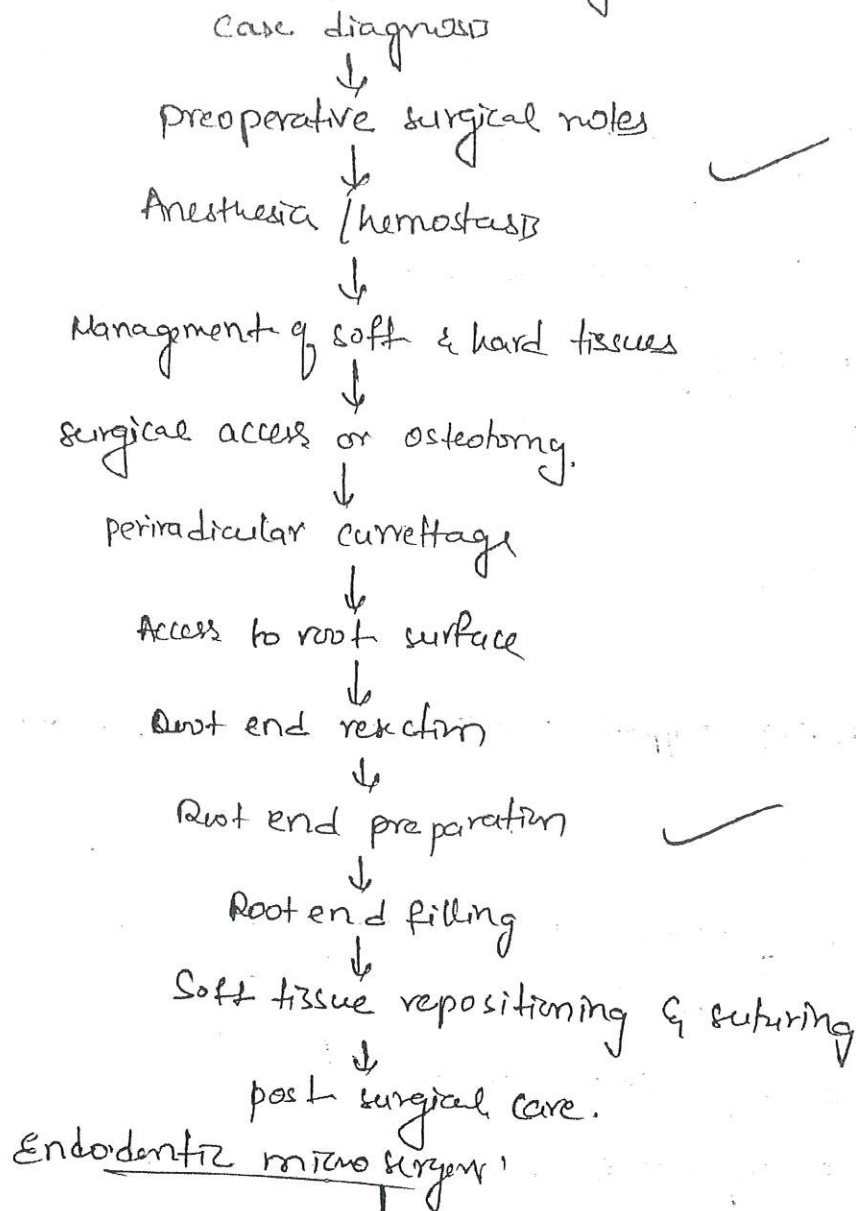 Case diagnosis
↓
preoperative surgical notes
↓
Anesthesia / hemostasis
↓
Management of soft & hard tissues
↓
surgical access or osteotomy.
↓
periradicular currettage
↓
Access to root surface
↓
Root end resection
↓
Root end preparation
↓
Root end filling
↓
Soft tissue repositioning & suturing
↓
post surgical care.
Endodontic micro surgery